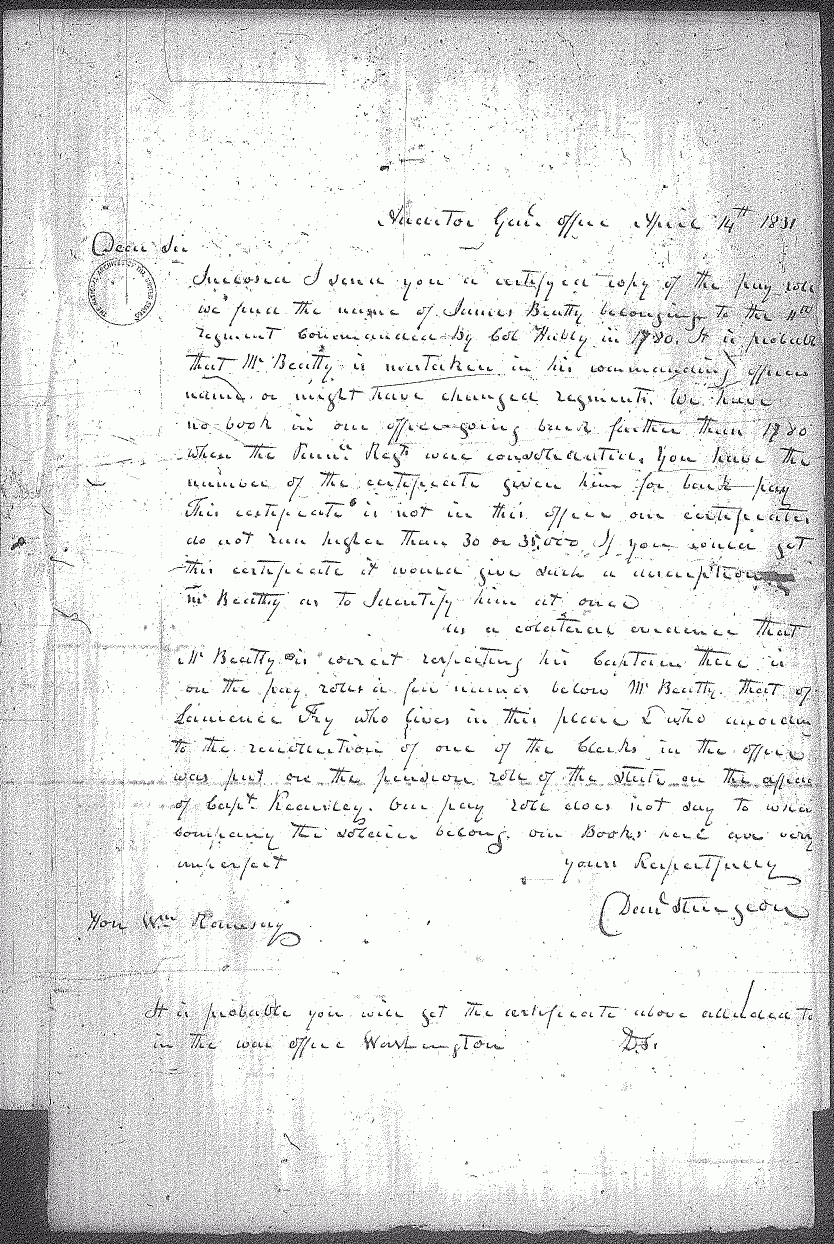 Auditor Genl. office April 14th 1831
Dear Sir
Inclosed I send you a certifyed copy of the pay role
we find the name of James Beatty belonging to the 11th
regment Commanded by Col Hubly in 1780. It is probable
that Mr Beatty is mistaken in his commanding officers
name or might have changed regments. We have
no book in our office going back further than 1780
when the Penna. Regts were consolidated. You have the
number of the certificate given him for back pay
This certificate is not in this office our certificates
do not run higher than 30 or 35,000 If you could get
this certificate it would give such a description
Mr Beatty as to Identify him at once
as a colateral evidence that
Mr Beatty is correct respecting his Captain there is
on the pay roles a few names below Mr Beatty. that of
Lawrence Fry who lives in this place & who according
to the recolection of one of the Clerks in the office
was put on the pension role of the State on the
of Capt. Kearsley. Our pay role does not say to what
company the soldier belong. our Books here are very
imperfect yours Respectfully
Danl Sturgeon
Hon Wm Ramsay
It is probable you will get the certificate above alluded to
in the war office Washington D.S.